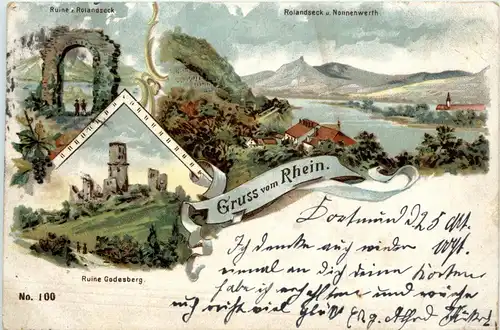 Ruine v. Rolandseck
Rolandseck u. Nonnenwerth
Gruss vom Rhein.
Ruine Godesberg.
No. 100
Dortmund d 25 Okt.
Ich denke auch wieder
einmal an dich deine Karten
habe ich erhalten und wünsche
noch recht viel Glück Alfred